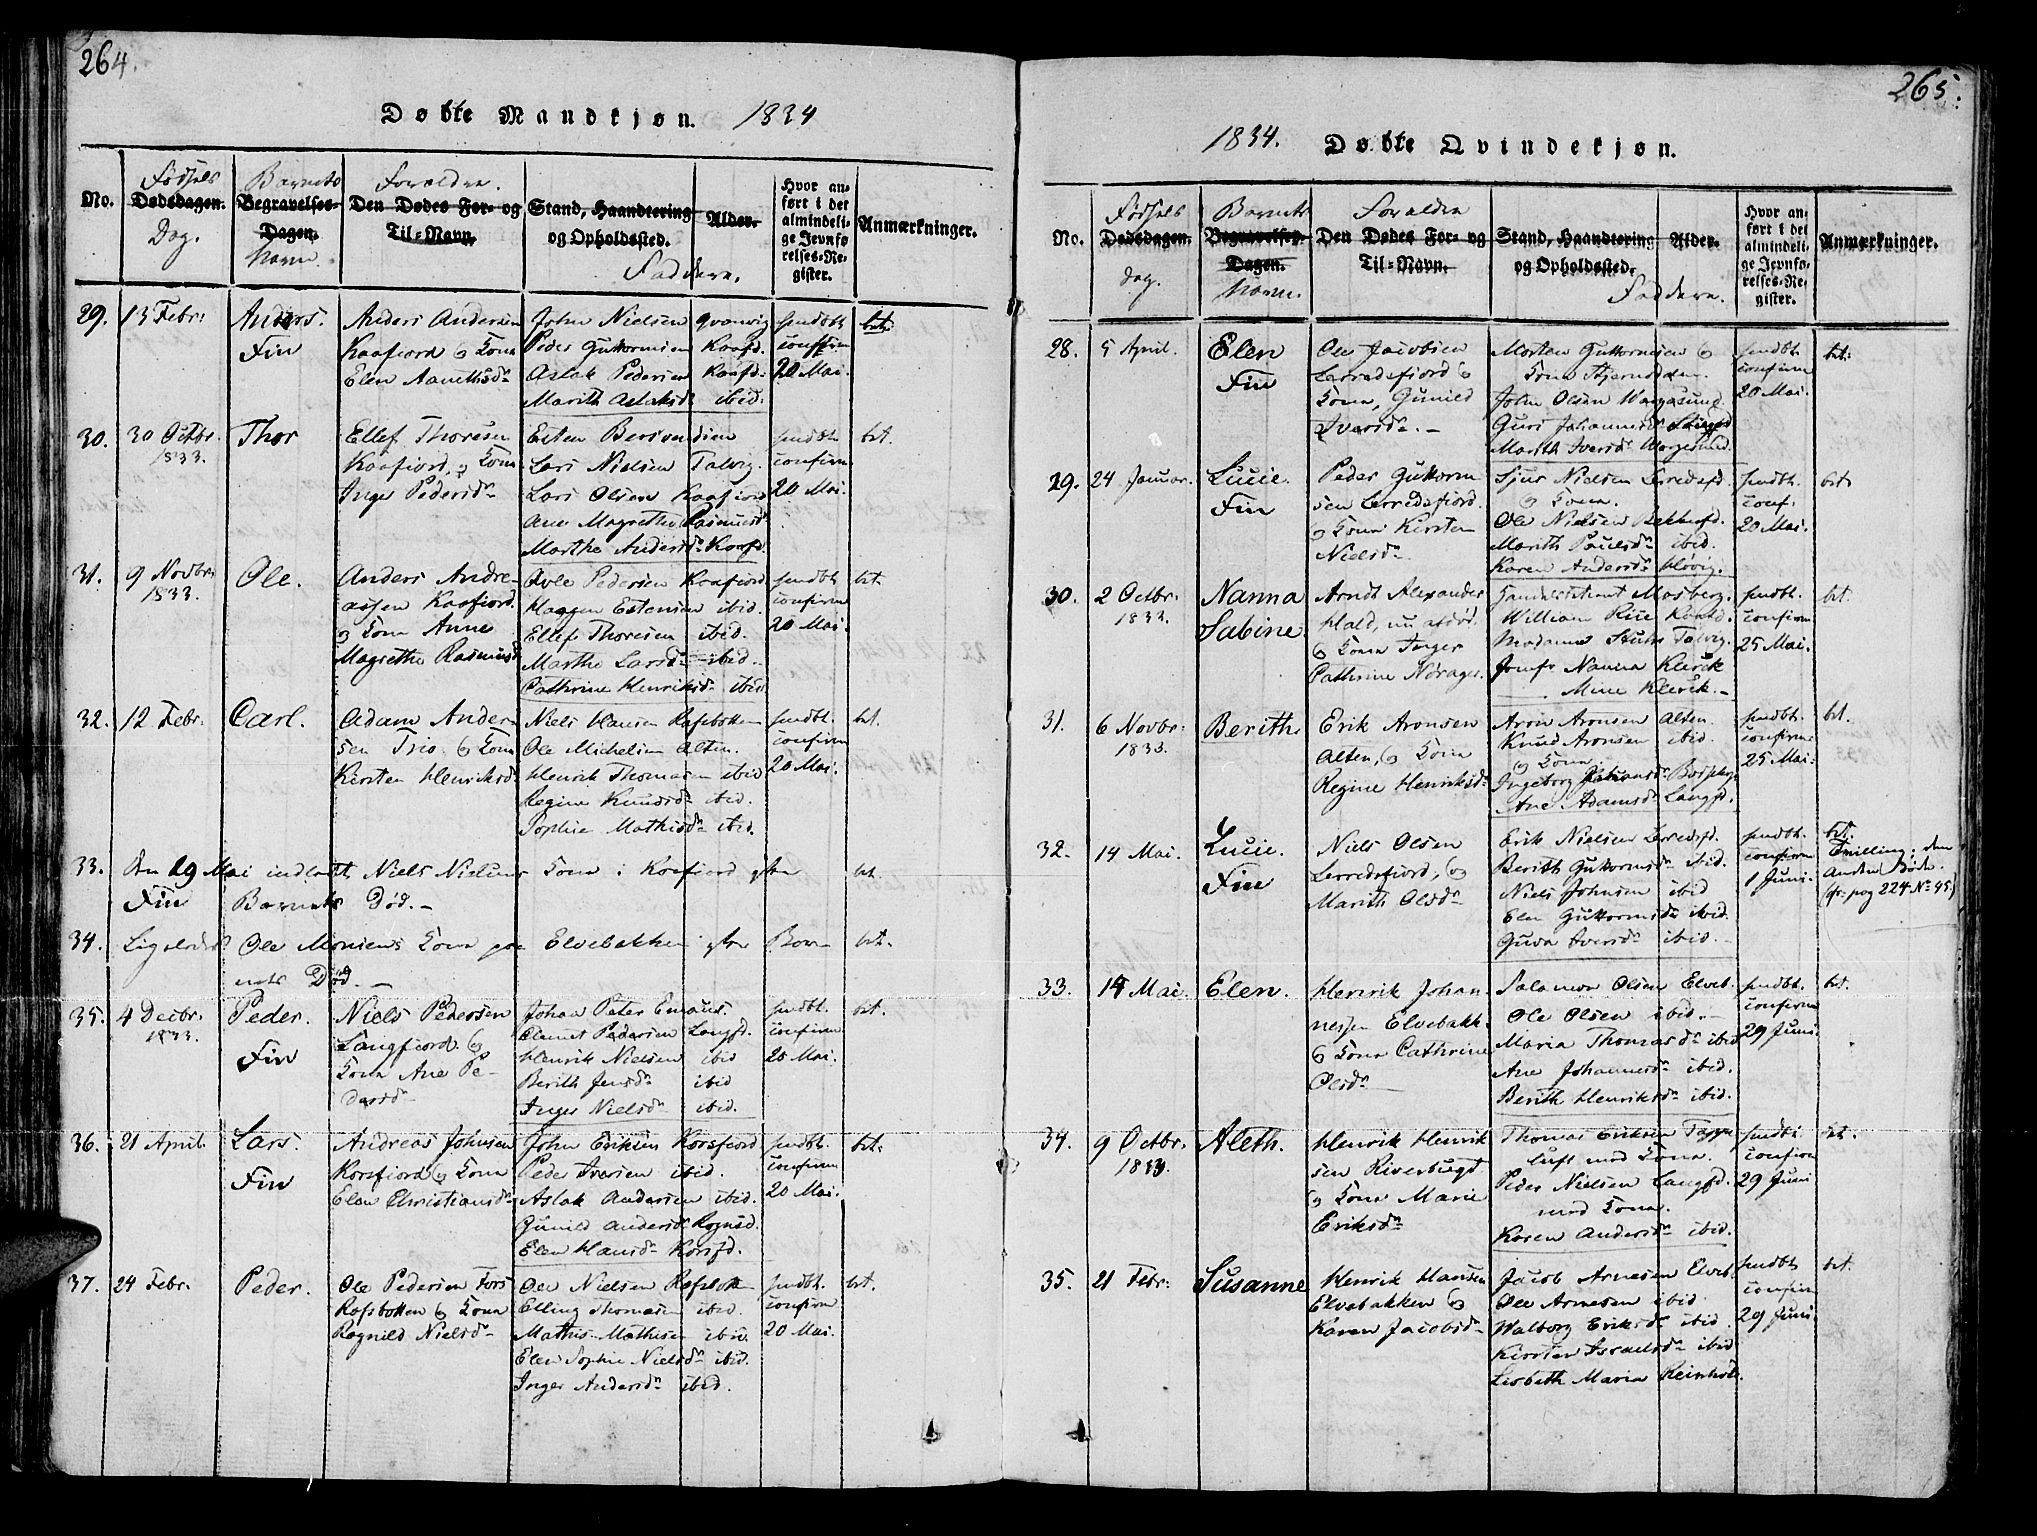 264.
Døbte Mandkjøn. 1834
No.
Fødsels
Dødsdagen.
Dag.
Barnets
Begravelses-
Dagen.
Navn.
Forældre.
Den Dødes For- og
Til-Navn.
Stand, Haandtering
og Opholdssted.
Faddere.
Alder.
Hvor an-
ført i det
almindeli-
ge Jevnfø
relses-Re-
gister.
Anmærkninger.
29. 13 Febr: Anders.
Fin
Anders Andersen
Kaafiord og Kona
Elen
John Nielsen Qvanvig
Peder Guttormsen Kaafd.
Aslak Pedersen Kaafd.
Marith Aslaksdr ibid.
hmdbt
confirm
20 Mai.
bet:
30. 30 Octbr.
1833.
Thor
Ellef Thoresen
Kaafiord, og Kona
Inger Pedersdr
Esten Bersvendsen
Lars Nielsen Talvig.
Lars Olsen Kaafiord
Ane Magrethe Rasmusdr
Marthe Andersdr Kaafd.
hmdbt.
confirm.
20 Mai.
bet.
31. 9 Novbr.
1833.
Ole.
Anders Andre-
assen Kaafiord.
og Kona Anne
Magrethe Rasmusd
Ole Pedersen Kaafiord
Haggen Estensen ibid.
Ellef Thoresen ibid.
Marthe Larsdr ibid.
Cathrine Henriksdr ibid.
hmdbt
confirm
20 Mai.
bet.
32. 12 Febr. Carl.
Adam Ander-
sen Trio. og Kona
Kirsten Henriksdr
Niels Hansen Rafsbotten
Ole Michelsen Alten.
Henrik Thomasen ibid
Regine Knudsdr ibid.
Sophie Mathisdr ibid.
hmdbt.
confirm
20 Mai.
bet.
33. Den 19 Mai indledt Niels Nielsens Kona i Kaafiord efter
Fin Barnets Død.-
bet.
34. Ligeledes Ole Monsens Kona paa Elvebakken efter Bar-
nets Død.-
bet.
35. 4 Decbr.
1833.
Peder.
Fin
Niels Pedersen
Langfiord. og
Kona Ane Pe-
dersdr
Johan Peter Emaus.
Clemet Pedersen Langfd.
Henrik Nielsen ibid
Berith Jensdr ibid
Inger Nielsdr ibid.
hmdbt.
confirm
20 Mai.
bet.
36. 21 April. Lars.
Fin
Andreas Johnsen
Korsfiord og Kona
Elen Christiansdr
John Eriksen Korsfiord
Peder Iversen ibid.
Aslak Andersen ibid.
Gunild Andersdr Rognsd.
Elen Hansdr Korsfd.
hmdbt.
confirm
20 Mai.
bet.
37. 24 Febr. Peder.
Ole Pedersen Fors
Rafsbotten og Kona
Rognild Nielsdr
Ole Nielsen Rafsbotten
Elling Thomasen ibid.
Mathis Mathisen ibid.
Elen Sophie Nielsdr ibid.
Inger Andersdr ibid.
hmdbt.
confirm
20 Mai.
bet.
265.
1834. Døbte Qvindekjøn.
No.
Fødsels
Dødsdagen.
dag.
Barnets
Begravelses-
Dagen.
Navn.
Forældre
Den Dødes For- og
Til-Navn.
Stand, Haandtering
og Opholdssted.
Faddere.
Alder.
Hvor an-
ført i det
almindeli-
ge Jevnfø-
relses-Re-
gister.
Anmærkninger.
28. 5 April. Elen
Fin
Ole Jacobsen
Lerredsfiord og
Kona, Gunild
Iversdr.-
Morten Guttormsen og
Kona
John Olsen Wargsund.
Guri Johannesdr
Marith Iversdr Wargesund.
hmdbt.
confirm
20 Mai.
bet.
29. 24 Januar. Lucie.
Fin
Peder Guttorm
sen Lerredsfiord.
og Kona Kirsten
Nielsdr
Sjur Nielsen Lerredsfd.
og Kona.
Ole Nielsen Bekkerfd.
Marith Poulsdr ibid.
Karen Andersdr
hmdbt.
conf.
20 Mai.
bet.
30. 2 Octbr.
1833.
Nanna
Sabine.
Arndt Alexander
Hald, nu afdød.
og Kona Inger
Cathrine Norager.
Handelsbetient Mosberg.
William Rice Kaafd.
Madame Stuhr Talvig.
Jomfr Nanna Klerck
Mine Klerck.-
hmdbt.
confirm
25 Mai.
bet.
31. 6 Novbr.
1833.
Berith
Erik Aronsen
Alten, og Kona
Regine Henriksdr
Aron Aronsen Alten.
Knud Aronsen ibid.
og Kona
Ingeborg Johansdr Bossekop
Ane Adamsdr Langfd.
hmdbt.
confirm.
25 Mai.
bet.
32. 14 Mai. Lucie.
Fin
Niels Olsen
Lerredsfiord, og
Marith Olsdr
Erik Nielsen Lerredsfd.
Berith Guttormsdr ibid.
Niels Johnsen ibid
Elen Guttormsdr ibid.
Guva Iversdr ibid.
hmdbt.
confirm
1 Juni.
bet.
Tvilling; den
anden Død.
(fr. pag 224 No 45)
33. 14 Mai. Elen.
Henrik Johan
nessen Elvebakk.
og Kona Cathrine
Olsdr
Salamon Olsen Elveb.
Ole Olsen ibid.-
Maria Thomasdr ibid
Ane Johannesdr ibid.
Berith Henriksdr ibid.
hmdbt.
confirm
29 Juni
bet.
34. 9 Octbr.
1833.
Aleth.
Henrik Henrik
sen Riverbugt
og Kona Marie
Eriksdr
Thomas Eriksen Tappe
luft med Kona.
Peder Nielsen Langfd.
med Kona.
Karen Andersdr ibid.
hmdbt
confirm
29 Juni
bet.
35. 21 Febr: Susanne
Henrik Hansen
Elvebakken og
Karen Jacobsdr
Jacob Arnesen Elveb.
Ole Arnesen ibid
Walborg Eriksdr ibid.
Kirsten Israelsdr ibid
Lisbeth Maria Reinholt.
hmdbt.
confirm
29 Juni
bet.